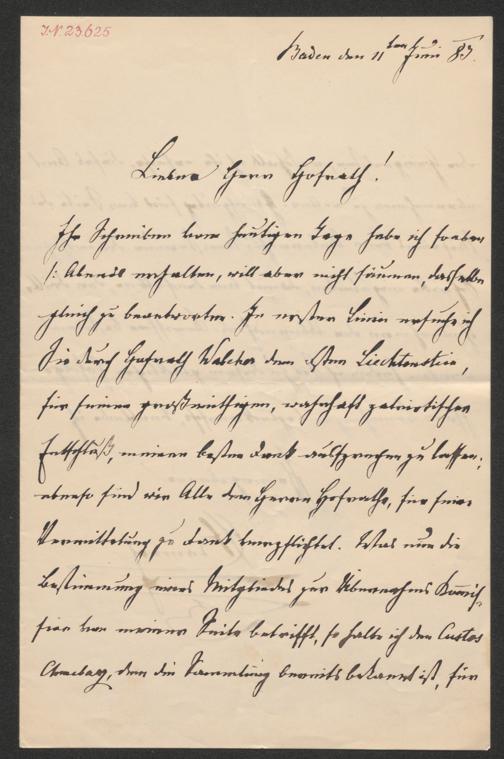 J.N. 23.625
Baden den 11ten Juni 83.
Lieber Herr Hofrath!
Ihr Schreiben vom heutigen Tage habe ich soeben
/: Abends erhalten, will aber nicht säumen, dasselbe
gleich zu beantworten. In erster Linie ersuche ich
Sie durch Hofrath Walcher dem Fsten Liechtenstein,
für seinen großmüthigen, wahrhaft patriotischen
Entschluß, meinen besten Dank aussprechen zu lassen;
ebenso sind wir Alle dem Herrn Hofrathe, für seine
Vermittelung zu Dank verpflichtet. Was nun die
Bestimmung eines Mitgliedes zur Übernahms Kommis-
sion von meiner Seite betrifft, so halte ich den Custos
dem die Sammlung bereits bekannt ist, für